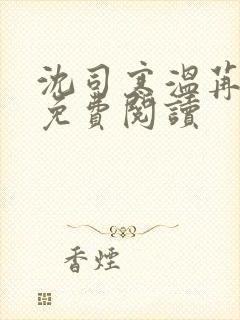 沈司寒溫苒
免費閱讀
香煙